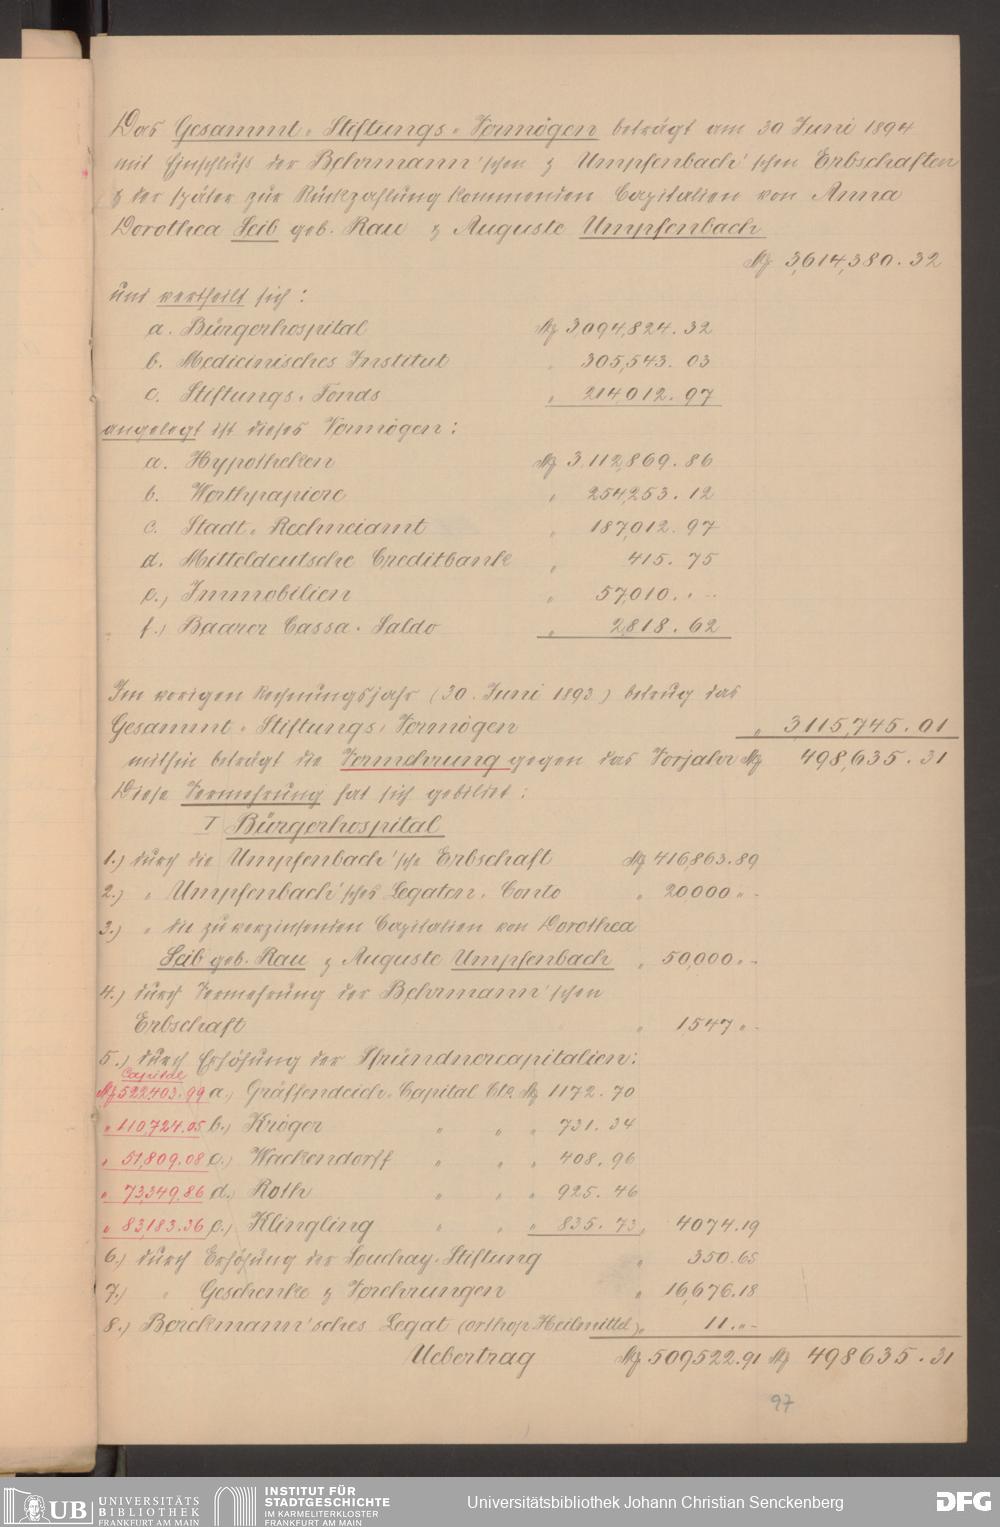 Das Gesammt-Stiftungs-Vermögen beträgt am 30 Juni 1894
mit Einschluß der Behrmann'schen & Umpfenbach'schen Erbschaften
& der später zur Rückzahlung kommenden Capitalien von Anna
Dorothea Leib geb. Rau & Auguste Umpfenbach
M 3,614,380.32
und vertheilt sich:
a. Bürgerhospital M 3,094,824.32
b. Medicinisches Institut " 305,543.03
c. Stiftungs-Fonds " 214,012.97
angelegt ist dieses Vermögen:
a. Hypotheken M 3,112,869.86
b. Werthpapiere " 254,253.12
c. Stadt-Rechneiamt " 187,012.97
d. Mitteldeutsche Creditbank " 415.75
e.) Immobilien " 57,010.--
f.) Baarer Cassa-Saldo " 2,818.62
Im vorigen Rechnungsjahr (30. Juni 1893) betrug das
Gesammt-Stiftungs-Vermögen " 3,115,745.01
mithin beträgt die Vermehrung gegen das Vorjahr M 498,635.31
Diese Vermehrung hat sich gebildet:
I Bürgerhospital
1.) durch die Umpfenbach'sche Erbschaft M 416,863.89
2.) " Umpfenbach'sches Legaten-Conto " 20000 " -
3.) " die zu verzinsenden Capitalien von Dorothea
Leib geb. Rau & Auguste Umpfenbach " 50,000 " -
4.) durch Vermehrung der Behrmann'schen
Erbschaft " 1547 " -
5.) durch Erhöhung der Pfründnercapitalien:
Capital
M 522,403.99 a.) Gräffendeich-Capital Cto. M 1172.70
" 110,724.05 b.) Kröger " " " 731.34
" 51,809.08 c.) Wackendorff " " " 408.96
" 73,349.86 d.) Roth " " " 925.46
" 83,183.36 e.) Klingling " " " 835.73 " 4074.19
6.) durch Erhöhung der Souchay-Stiftung " 350.65
7.) " Geschenke & Verehrungen " 16,676.18
8.) Berckmann'sches Legat (orthop. Heilmittel) " 11." -
Uebertrag M 509522.91 M 498635.31
97
UB UNIVERSITÄTS
BIBLIOTHEK
FRANKFURT AM MAIN
INSTITUT FÜR
STADTGESCHICHTE
IM KARMELITERKLOSTER
FRANKFURT AM MAIN
Universitätsbibliothek Johann Christian Senckenberg
DFG